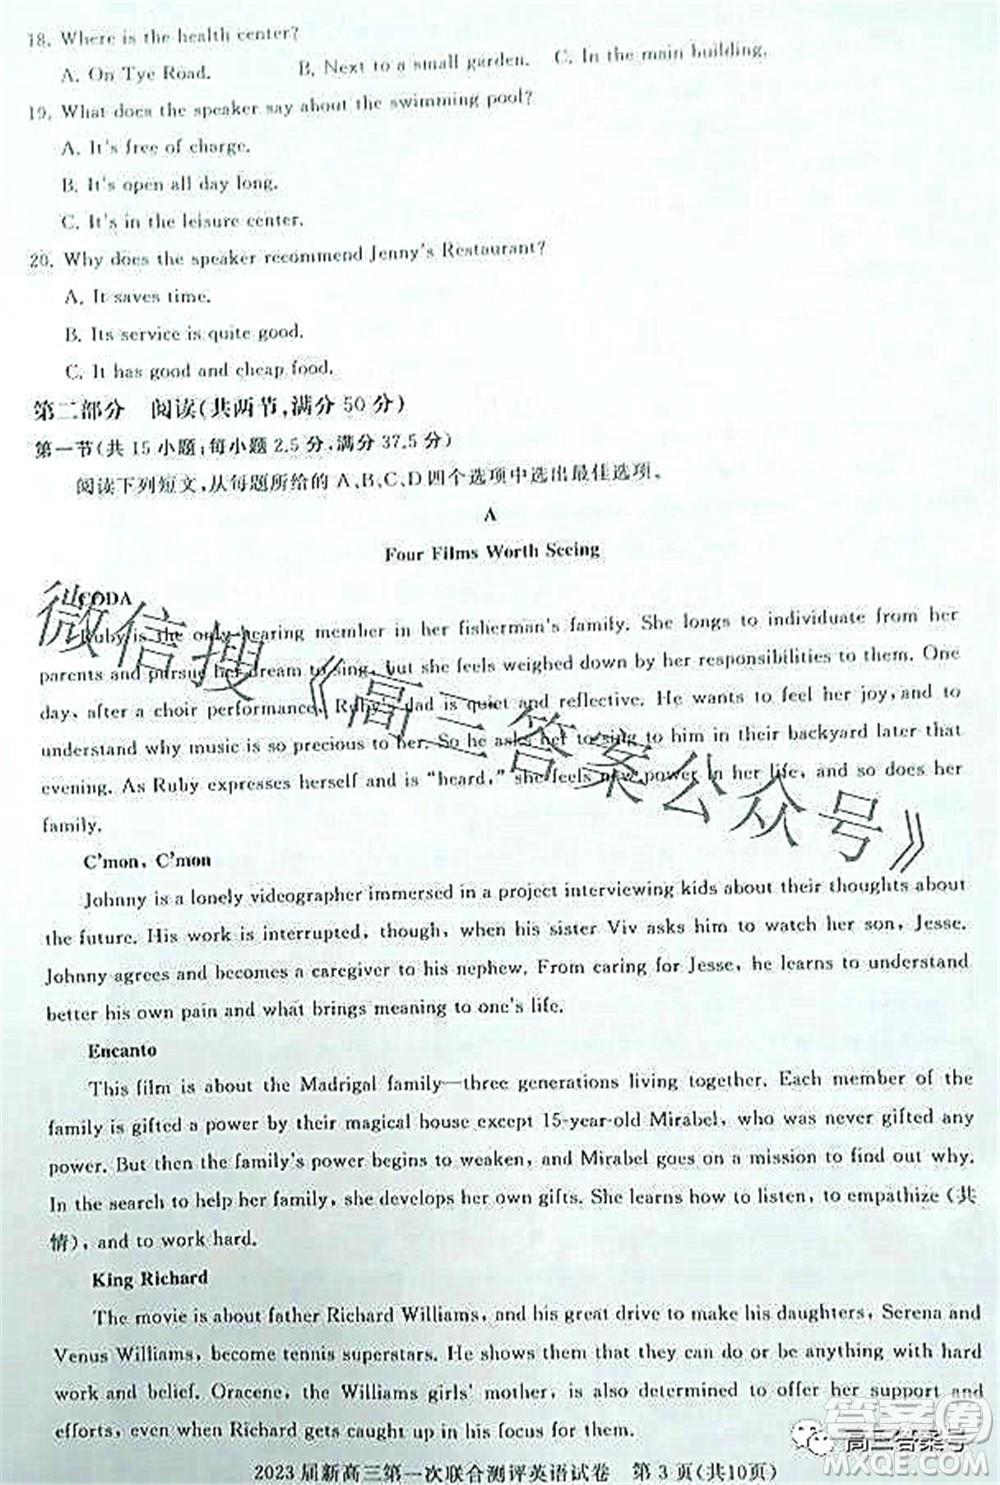 18. Where is the health center?
A. On Tye Road. B. Next to a small garden. C. In the main building.
19. What does the speaker say about the swimming pool?
A. It's free of charge.
B. It's open all day long.
C. It's in the leisure center.
20. Why does the speaker recommend Jenny's Restaurant?
A. It saves time.
B. Its service is quite good.
C. It has good and cheap food.
第二部分 阅读(共两节,满分50分)
第一节(共15小题;每小题2.5分,满分37.5分)
阅读下列短文,从每题所给的A、B、C、D四个选项中选出最佳选项。
A
Four Films Worth Seeing
CODA
Ruby is the only hearing member in her fisherman's family. She longs to individuate from her
parents and pursue her dream to sing, but she feels weighed down by her responsibilities to them. One
day, after a choir performance, Ruby's dad is quiet and reflective. He wants to feel her joy, and to
understand why music is so precious to her. So he asks her to sing to him in their backyard later that
evening. As Ruby expresses herself and is “heard,” she feels new power in her life, and so does her
family.
C'mon, C'mon
Johnny is a lonely videographer immersed in a project interviewing kids about their thoughts about
the future. His work is interrupted, though, when his sister Viv asks him to watch her son, Jesse.
Johnny agrees and becomes a caregiver to his nephew. From caring for Jesse, he learns to understand
better his own pain and what brings meaning to one's life.
Encanto
This film is about the Madrigal family—three generations living together. Each member of the
family is gifted a power by their magical house except 15-year-old Mirabel, who was never gifted any
power. But then the family's power begins to weaken, and Mirabel goes on a mission to find out why.
In the search to help her family, she develops her own gifts. She learns how to listen, to empathize (共
情), and to work hard.
King Richard
The movie is about father Richard Williams, and his great drive to make his daughters, Serena and
Venus Williams, become tennis superstars. He shows them that they can be anything with hard
work and belief. Oracene, the Williams girls' mother, is also determined to offer her support and
efforts, even when Richard gets caught up in his focus for them.
2023届新高三第一次联合测评英语试卷 第3页(共10页)
微信搜《高三答案公众号》
高三答案号
答案圈
MXQE.COM